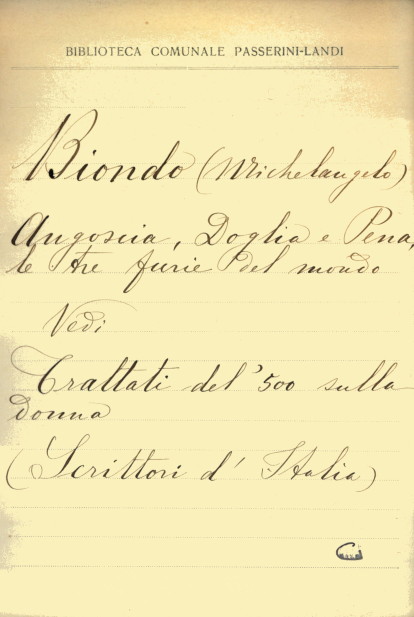 BIBLIOTECA COMUNALE PASSERINI-LANDI
Biondo (Michelangelo)
Angoscia, Doglia e Pena,
le tre furie del mondo
Vedi
Trattati del '500 sulla
donna
(Scrittori d'Italia)